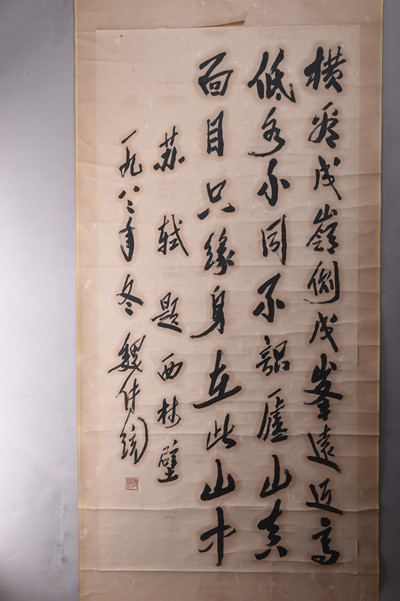 横看成嶺側成峯遠近高
低各不同不識廬山真
面目只缘身在此山中
苏轼题西林壁
一九八三年冬 魏传统